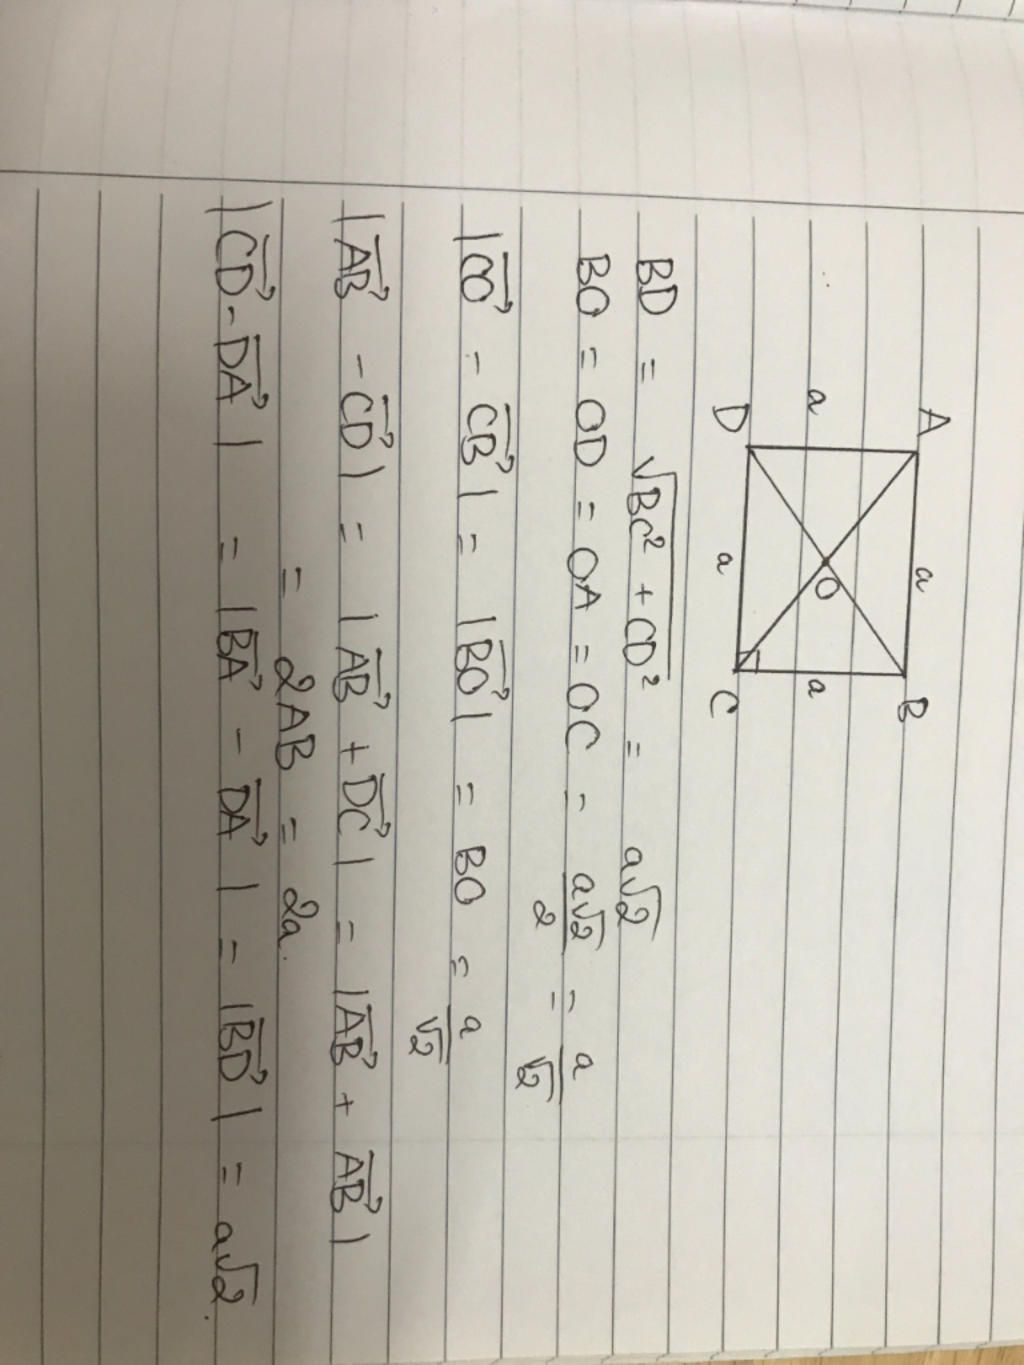 A a B
a O a
D a C
BD = √BC² + CD² = a√2
BO = OD = OA = OC = a√2/2 = a/√2
|CO⃗ - CB⃗| = |BO⃗| = BO = a/√2
|AB⃗ - CD⃗| = |AB⃗ + DC⃗| = |AB⃗ + AB⃗|
= 2AB = 2a.
|CD⃗ - DA⃗| = |BA⃗ - DA⃗| = |BD⃗| = a√2.